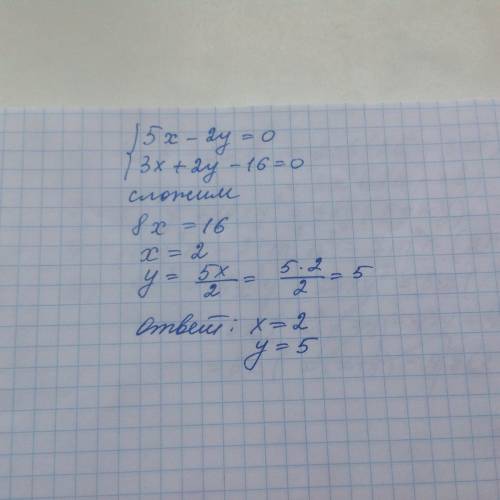 {5x - 2y = 0
{3x + 2y - 16 = 0
сложим
8x = 16
x = 2
y = 5x/2 = 5·2/2 = 5
ответ: x = 2
y = 5